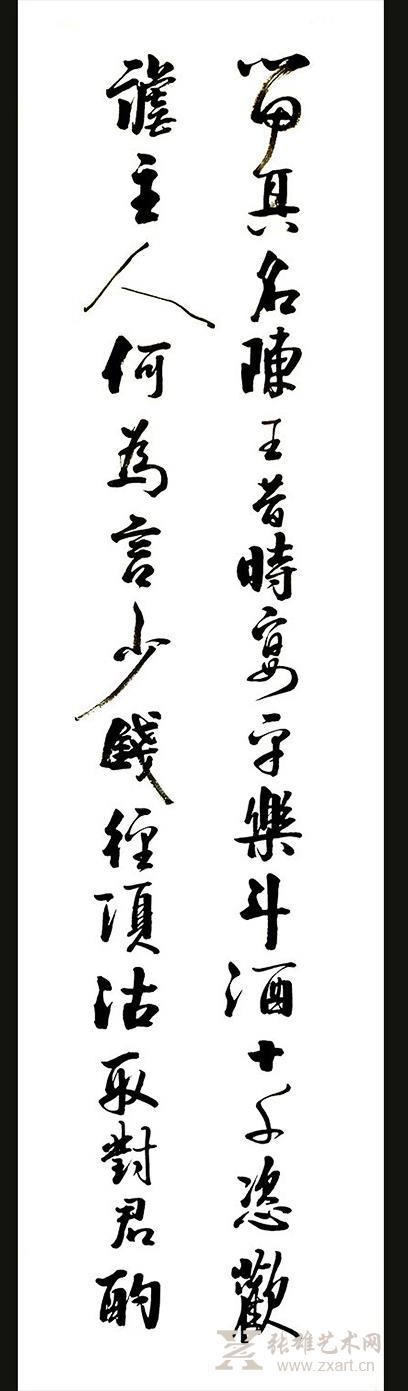 留其名陳王昔時宴平樂斗酒十千恣歡
謔主人何為言少錢徑須沽取對君酌
张雄艺术网
www.zxart.cn